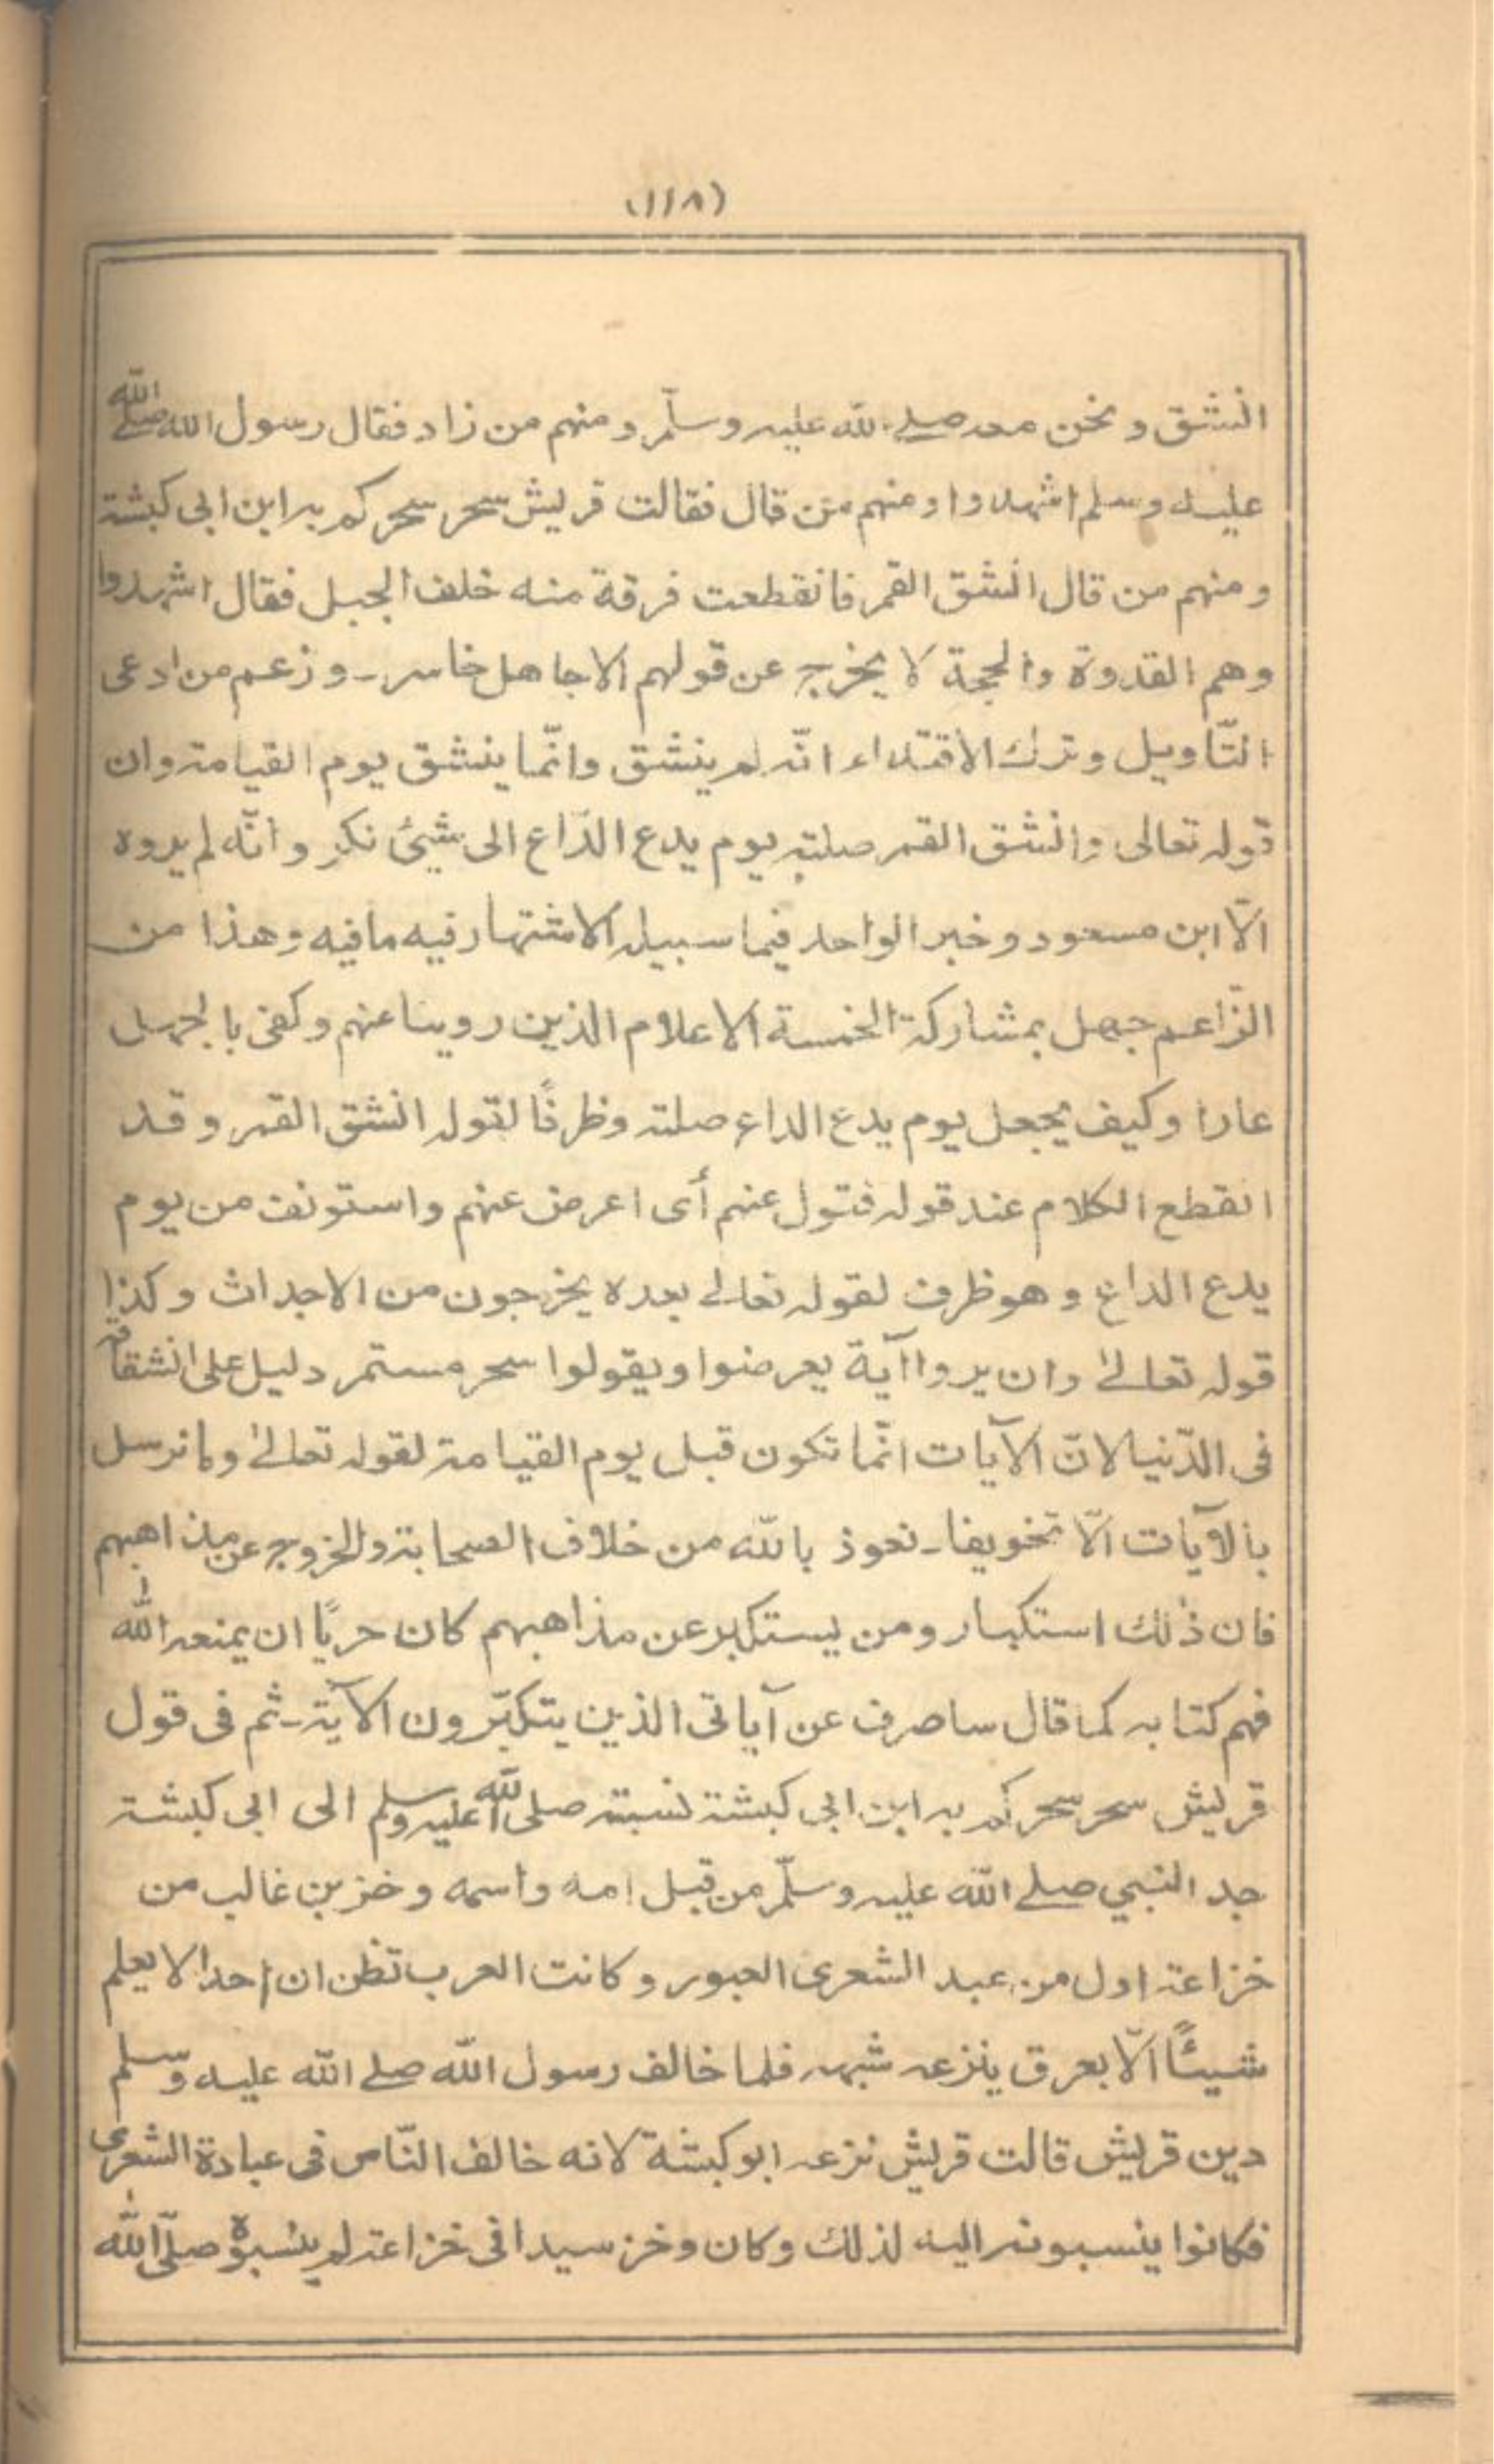 (١١٨)
انشق ونحن معه صلے الله عليه وسلّم ومنهم من زاد فقال رسول الله صلے الله
عليه وسلم اشهدوا ومنهم من قال فقالت قريش سحر سحركم به ابن ابى كبشة
ومنهم من قال انشق القمر فانقطعت فرقة منه خلف الجبل فقال اشهدوا
وهم القدوة والحجة لا يخرج عن قولهم الا جاهل خاسر ـ وزعم من ادعى
التّاويل وترك الاقتداء انّه لم ينشق وانّما ينشق يوم القيامة وان
قوله تعالى وانشق القمر صلته يوم يدع الدّاع الى شيئ نكر وانّه لم يروه
الّا ابن مسعود وخبر الواحد فيما سبيله الاشتهار فيه مافيه وهذا من
الزّاعم جهل بمشاركة الخمسة الاعلام الذين روينا عنهم وكفى بالجهل
عارا وكيف يجعل يوم يدع الداع صلته وظرفًا لقوله انشق القمر وقد
انقطع الكلام عند قوله فتول عنهم أى اعرض عنهم واستونف من يوم
يدع الداع وهو ظرف لقوله تعالے بعده يخرجون من الاجداث وكذا
قوله تعالےٰ وان يروا آية يعرضوا ويقولوا سحر مستمر دليل على انشقاقه
فى الدّنيا لانّ الآيات انّما تكون قبل يوم القيامة لقوله تعالےٰ وما نرسل
بالآيات الّا تخويفا ـ نعوذ بالله من خلاف الصحابة والخروج عن مذاهبهم
فان ذٰلك استكبار ومن يستكبر عن مذاهبهم كان حريًا ان يمنعه الله
فهم كتابه كما قال ساصرف عن آياتى الذين يتكبّرون الآية ـ ثم فى قول
قريش سحر سحركم به ابن ابى كبشة نسبته صلى الله عليه وسلم الى ابى كبشة
جد النبي صلے الله عليه وسلّم من قبل امه واسمه وخز بن غالب من
خزاعة اول من عبد الشعرى العبور وكانت العرب تظن ان احدا لا يعلم
شيئًا الّا بعرق ينزعه شبهه فلما خالف رسول الله صلے الله عليه وسلم
دين قريش قالت قريش نزعه ابوكبشة لانه خالف النّاس فى عبادة الشعرى
فكانوا ينسبونه اليه لذلك وكان وخز سيدا فى خزاعة لم ينسبوه صلّى الله